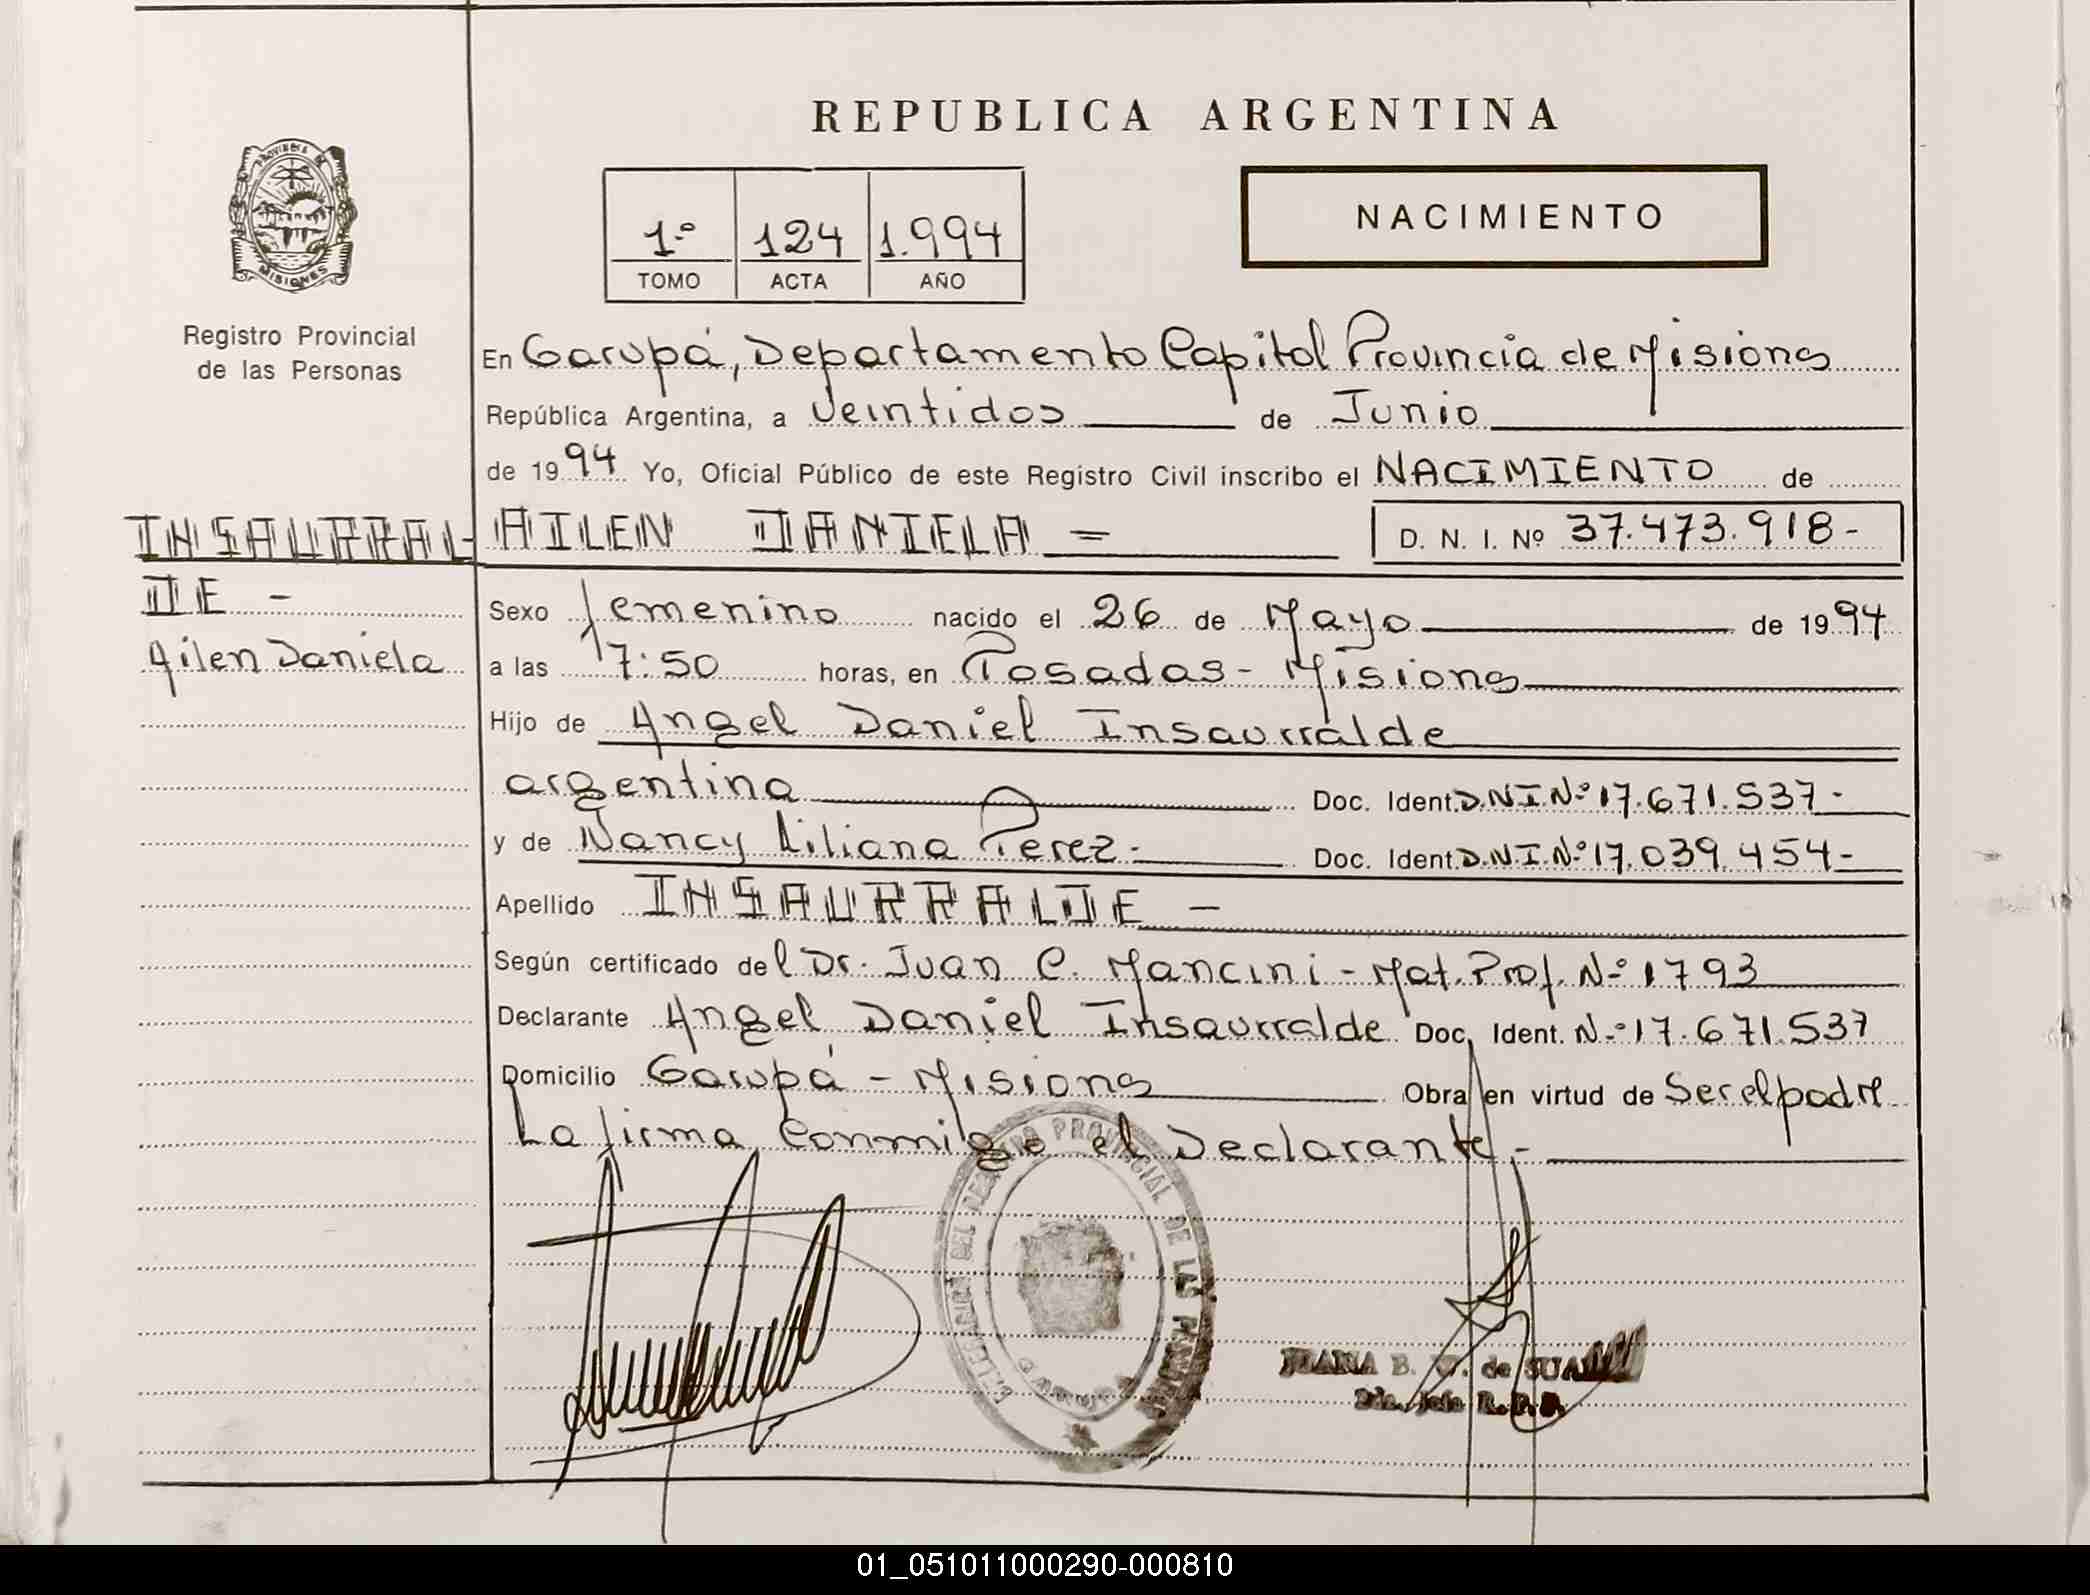 REPUBLICA ARGENTINA
PROVINCIA DE
MISIONES
1.º 124 1.994
TOMO ACTA AÑO
NACIMIENTO
Registro Provincial
de las Personas
En Garupá, Departamento Capital Provincia de Misiones
República Argentina, a Veintidos de Junio
de 1994 Yo, Oficial Público de este Registro Civil inscribo el NACIMIENTO de
INSAURRAL-
DE -
Ailen Daniela
AILEN DANIELA =
D. N. I. Nº 37.473.918-
Sexo femenino nacido el 26 de Mayo de 1994
a las 17:50 horas, en Posadas - Misiones
Hijo de Angel Daniel Insaurralde
argentina Doc. Ident. D.N.I.Nº 17.671.537-
y de Nancy Liliana Perez- Doc. Ident. D.N.I.Nº 17.039.454-
Apellido INSAURRALDE -
Según certificado del Dr. Juan C. Mancini - Mat. Prof. Nº 1793
Declarante Angel Daniel Insaurralde Doc. Ident. Nº 17.671.537
Domicilio Garupá - Misiones Obra en virtud de Ser el padre
La firma Conmigo el Declarante.-
DELEGACION DEL REGISTRO PROVINCIAL DE LAS PERSONAS
GARUPA
JUANA B. de
Jefe R.P.P.
01_051011000290-000810